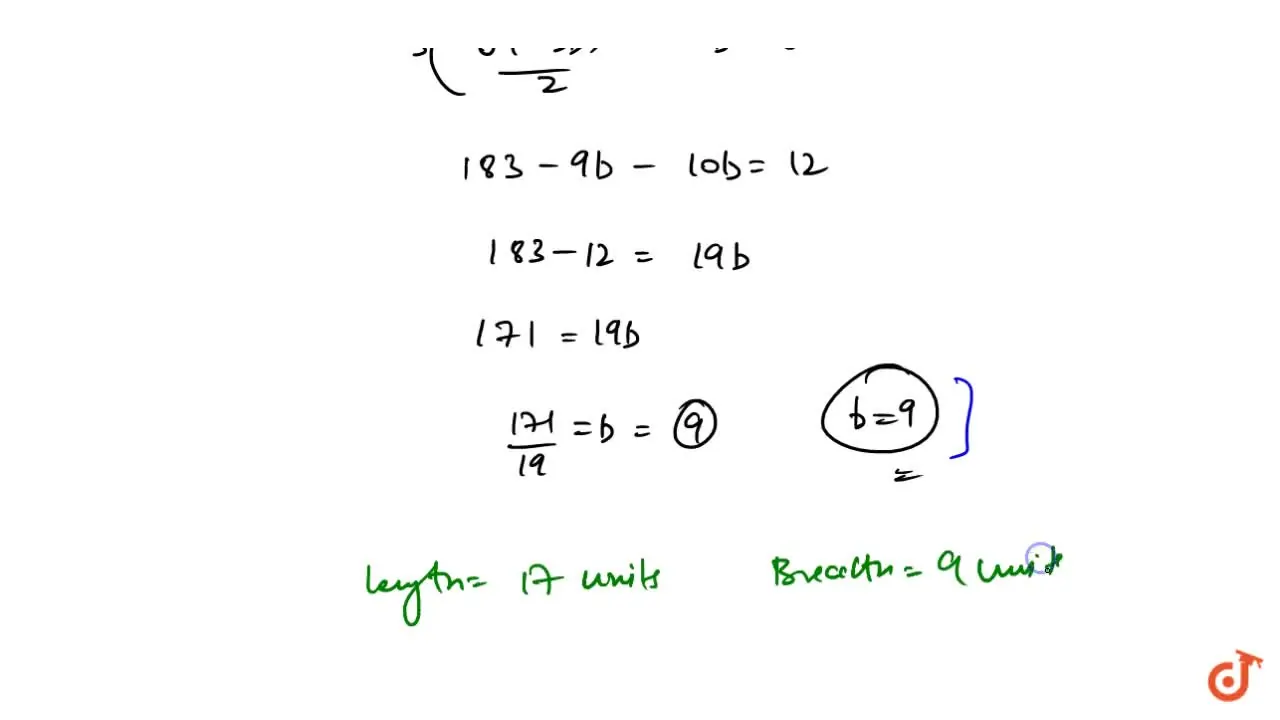 2
183 - 9b - 10b = 12
183 - 12 = 19b
171 = 19b
171/19 = b = 9
b = 9
length = 17 units
Breadth = 9 units